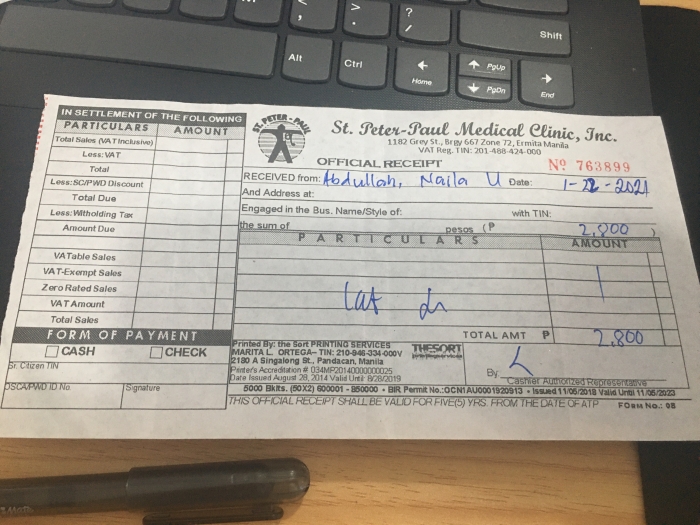 ?
, . /
Shift
Alt Ctrl
Home PgUp PgDn End
IN SETTLEMENT OF THE FOLLOWING
PARTICULARS AMOUNT
Total Sales (VAT Inclusive)
Less: VAT
Total
Less: SC/PWD Discount
Total Due
Less: Witholding Tax
Amount Due
VATable Sales
VAT-Exempt Sales
Zero Rated Sales
VAT Amount
Total Sales
FORM OF PAYMENT
CASH CHECK
Sr. Citizen TIN
OSCA/PWD ID No Signature
ST. PETER-PAUL
St. Peter-Paul Medical Clinic, Inc.
1182 Grey St., Brgy 667 Zone 72, Ermita Manila
VAT Reg. TIN: 201-488-424-000
OFFICIAL RECEIPT Nº 763899
RECEIVED from: Abdullah, Naila U Date: 1-22-2021
And Address at:
Engaged in the Bus. Name/Style of: with TIN:
the sum of pesos (P 2,800 )
PARTICULARS AMOUNT
TOTAL AMT P 2,800
By
Cashier Authorized Representative
Printed By: the Sort PRINTING SERVICES
MARITA L. ORTEGA- TIN: 210-946-334-000V
2180 A Singalong St., Pandacan, Manila
Printer's Accreditation # 034MP20140000000025
Date Issued August 28, 2014 Valid Until 8/28/2019
THESORT
5000 Bkts. (50X2) 600001 - 850000 • BIR Permit No.:OCN1AU0001920913 • Issued 11/05/2018 Valid Until 11/05/2023
THIS OFFICIAL RECEIPT SHALL BE VALID FOR FIVE(5) YRS. FROM THE DATE OF ATP FORM NO.: 05